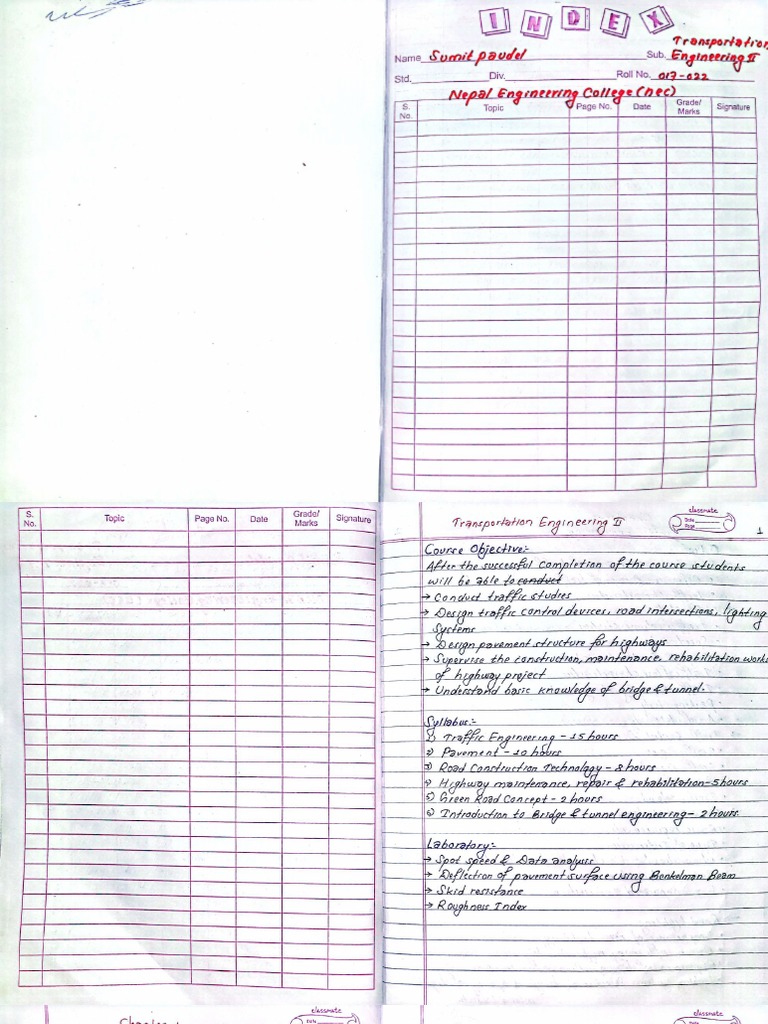 INDEX
Name Sumit paudel Sub. Transportation Engineering II
Std. Div. Roll No. 017-022
Nepal Engineering College (nec)
S. No. Topic Page No. Date Grade/ Marks Signature
S. No. Topic Page No. Date Grade/ Marks Signature
Transportation Engineering II
classmate
Date
Page
1
Course Objective:-
After the successful completion of the course students
will be able to conduct
→ Conduct traffic studies
→ Design traffic control devices, road intersections, lighting
Systems
→ Design pavement structure for highways
→ Supervise the construction, maintenance, rehabilitation works
of highway project
→ Understand basic knowledge of bridge & tunnel.
Syllabus:-
1) Traffic Engineering - 15 hours
2) Pavement - 10 hours
3) Road Construction Technology - 8 hours
4) Highway maintenance, repair & rehabilitation - 5 hours
5) Green Road Concept - 2 hours
6) Introduction to Bridge & tunnel engineering - 2 hours
Laboratory:-
→ Spot speed & Data analysis
→ Deflection of pavement surface using Benkelman Beam
→ Skid resistance
→ Roughness Index
classmate
classmate